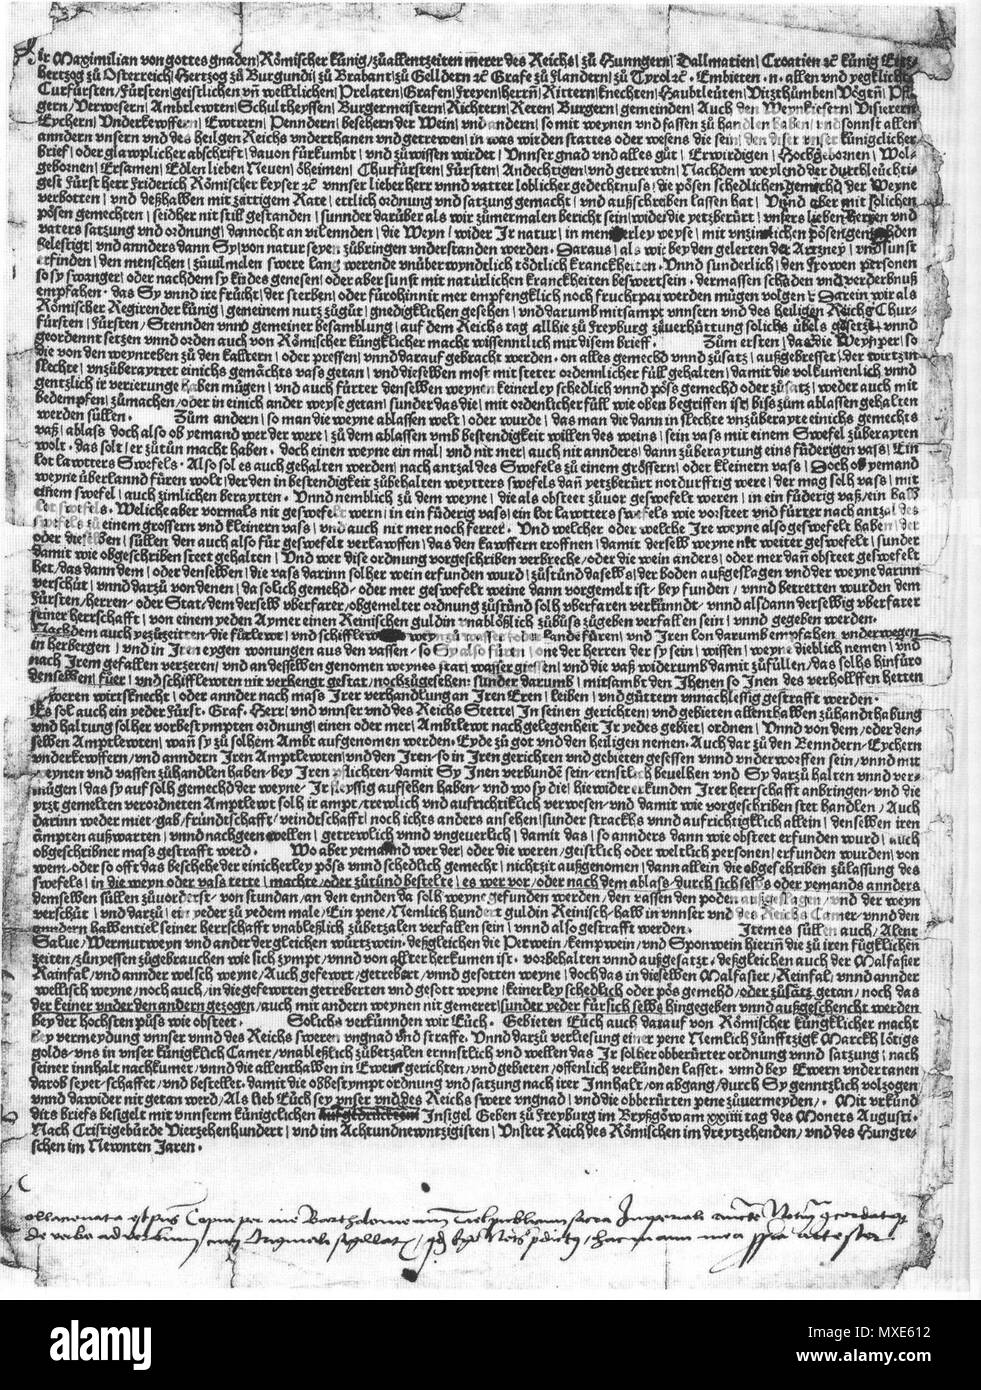 Wir Maximilian von gottes gnaden/Römischer künig/zůallentzeiten merer des Reichs/zů Hunngern/Dallmatien/Croatien ꝛc künig Ertz-
hertzog zů Osterreich/Hertzog zů Burgundi/zů Brabant/zů Gelldern ꝛc Grafe zů flandern/zů Tyrol ꝛc. Embieten. n. allen vnd yegklichn
Curfürsten/fürsten/geistlichen vn̄ welltlichen/Prelaten/Grafen/freyen/herrn̄/Rittern/knechten/Haubtleüten/Vitzthümben/Vögtn̄/Pfle-
gern/Verwesern/Ambtlewten/Schultheyssen/Burgermeistern/Richtern/Reten/Burgern/gemeinden/Auch den Weynkiesern/Visierern
Eychern/Vnderkewffern/Ewerern/Penndern/besehern der Wein/vnd andern/so mit weynen vnd fassen zů handlen haben/vnd sonnst allen
anndern vnsern vnd des heilgen Reichs vnderthanen vnd getrewen/in was wirden stattes oder wesens die sein/den diser vnser küniglicher
brief/oder glawplicher abschrift/dauon fürkumbt/vnd zůwissen wirdet/Vnnser gnad vnd alles gůt/Erwirdigen/Hochgebornen/Wol-
gebornen/Ersamen/Edlen lieben Neuen/öheimen/Churfürsten/fürsten/Andechtigen/vnd getrewen/Nachdem weylend der durchleüchti-
gest fürst herr friderich Römischer keyser ꝛc vnnser lieber herr vnnd vatter loblicher gedechtnuss/die pösen schedlichen gemechd der Weyne
verbotten/vnd deßhalben mit zättigem Rate/ettlich ordnung vnd satzung gemacht/vnd außschreiben lassen hat/Vnnd aber mit solichen
pösen gemechten/seidher nit still gestanden/sunnder darüber als wir zůmermalen bericht sein/wider die yetzberürt/vnsers lieben herren vnd
vaters satzung vnd ordnung/dannocht an vil ennden/die Weyn/wider Ir natur/in menicherley weyse/mit vnzimlichen pösen gemechden
gelestigt/vnd annders dann Sy/von natur seyen zůbringen vnderstanden werden. Daraus/als wir bey den gelerten der Artzney/vnd sunst
erfinden/den menschen/zůuilmalen swere lang werende vnüberwyndtlich tödtlich kranckheiten. Vnnd sunderlich/den frowen personen
so sy swanger/oder nachdem sy kindes genesen/oder aber sunst mit natürlichen kranckheiten beswert sein. dermassen schaden vnd verderbnuß
empfahen. das Sy vnnd ire frücht/der sterben/oder fürohin nit mer empfengklich noch fruchtpar werden mügen volget. Darein wir als
Römischer Regirender künig/gemeinem nutz zůgůt/gnedigklichen gesehen/vnd darumb mitsampt vnnsern vnd des heiligen Reichs Chur-
fürsten/fürsten/Stennden vnnd gemeiner besamblung/auf dem Reichs tag allhie zů freyburg zůuerhüttung solichs übels gesetzt/vnnd
geordennt setzen vnnd orden auch von Römischer küngklicher macht wissenntlich mit disem brief. Zům ersten/das die Weynper/so
die von den weynreben zů den kalltern/oder pressen/vnnd darauf gebracht werden. on alles gemechd vnnd zůsatz/außgebresset/der wirt zůn
slechte/vnzüberayttet einichs gemächts vass getan/vnd die selben most mit steter ordennlicher füll gehalten/damit die volkumenlich vnnd
gentzlich ir verierunge haben mügen/vnd auch fürter denselben weynen keinerley schedlich vnnd pöss gemechd oder zůsatz/weder auch mit
bedempfen/zůmachen/oder in einich ander weyse getan/sunder das die/mit ordenlicher füll wie oben begriffen ist/biß zům ablassen gehalten
werden süllen. Zům andern/so man die weyne ablassen welt/oder wurde/das man die dann in slechte vnzüberayte einichs gemechts
vaß/ablass. doch also ob yemand wer der were/zů dem ablassen vmb bestendigkeit willen des weins/sein vass mit einem Swefel zůberayten
wolt. das solt/er zůtün macht haben. doch einen weyne ein mal/vnd nit mer/auch nit annders/dann zůberaytung eins füderigen vass/Ein
lot lawtters Swefels. Also sol es auch gehalten werden/nach antzal des Swefels zů einem grössern/oder kleinern vass/Doch ob yemand
weyne überlannd füren wolt/der den in bestendigkeit zůbehalten weytters swefels dan̄ yetzberürt notdurfftig were/der mag solh vass/mit
einem swefel/auch zimlichen beraytten. Vnnd nemblich zů dem weyne/die als obsteet zůuor geswefelt weren/in ein füderig vaß/ein halb
lot swefels. Welich aber vormals nit geswefelt wern/in ein füderig vass/ein lot lawtters swefels wie vorsteet vnd fürter nach antzal des
swefels zů einem grossern vnd kleinern vass/vnd auch nit mer noch ferrer. Vnd welcher oder welche Ire weyne also geswefelt haben/der
oder dieselben/süllen den auch also für geswefelt verkawffen/das den kawffern eroffnen/damit derselb weyne nit weiter geswefelt/sunder
damit wie obgeschriben steet gehalten/Vnd wer dise ordnung vorgeschriben verbreche/oder die wein anders/oder mer dan̄ obsteet geswefelt
het/das dann dem/oder denselben/die vass darinn solher wein erfunden wurd/zůstünd daselbs/der boden außgeslagen vnd der weyne darinn
verschüt/vnnd darzů von denen/da solich gemechd-oder mer geswefelt weine dann vorgemelt ist-bey funden/vnnd betretten wurden dem
fürsten/herren-oder Stat/dem derselb vberfarer/obgemelter ordnung zůstünd solh vberfaren verkünndt/vnnd alsdann derselbig vberfarer
seiner herrschafft/von einem yeden Aymer einen Reinischen guldin vnablößlich zůbůß zůgeben verfallen sein/vnnd gegeben werden.
Nachdem auch ye zůzeitten die fürlewt/vnd schifflewt weyn zů wasser/oder lande füren/vnd Iren lon darumb empfahen vnderwegen
in herbergen/vnd in Iren eygen wonungen aus den vassen-so Sy also füren/one der herren der sy sein/wissen/weyne dieblich nemen/vnd
nach Irem gefallen verzeren/vnd an desselben genomen weynes stat/wasser giessen/vnd die vaß widerumb damit zůfüllen/das solhs hinfüro
denselben/fuer/vnd schifflewten nit verhengt gestat/noch zůgesehen: sunder darumb/mitsambt den Ihenen so Inen des verholffen hetten
weren wirtsknecht/oder annder nach mass Irer verhandlung an Iren Eren/leiben/vnd güttern vnnachlessig gestrafft werden.
Es sol auch ein yeder fürst. Graf. Herr/vnd vnnser vnd des Reichs Stette/In seinen gerichten/vnd gebieten allenthalben zůhandthabung
vnd haltung solher vorbestympten ordnung/einen oder mer/Ambtlewt nach gelegenheit Ir yedes gebiet/ordnen/Vnnd von dem/oder den-
selben Amptlewten/wan̄ sy zů solhem Ambt aufgenomen werden. Eyde zů got vnd den heiligen nemen. Auch dar zů den Benndern-Eychern
vnderkewffern/vnd anndern Iren Amptlewten/vnd den Iren-so in Iren gerichten vnd gebieten gesessen vnnd vnder worffen sein/vnnd mit
weynen vnd vassen zůhandlen haben-bey Iren pflichten-damit Sy Inen verbundē sein-ernstlich beuelhen vnd Sy darzů halten vnnd ver-
mügen/das sy auf solh gemechd der weyne-Ir fleyssig aufsehen haben-vnd wo sy die/hiewider erkunden Irer herrschafft anbringen-vnd die
yetzt gemelten verordneten Amptlewt solh ir ampt/trewlich vnd aufrichtiklich verwesen/vnd damit wie vorgeschriben stet handlen/Auch
darinn weder miet-gab/fründtschafft/veindtschafft/noch ichts anders ansehen/sunder stracks vnnd aufrichtigklich allein/denselben iren
ämpten außwarten/vnnd nachgeen wellen/getrewlich vnnd vngeuerlich/damit das/so annders dann wie obsteet erfunden wurd/auch
obgeschribner mass gestrafft werd. Wo aber yemand wer der/oder die weren/geistlich oder weltlich personen/erfunden wurden/von
wem/oder so offt das beschehe der einicherley pöss vnnd schedlich gemecht/nichtzit außgenomen/dann allein die obgeschriben zůlassung des
swefels/in die weyn oder vass tette/machte/oder zůtünd bestelte/es wer vor/oder nach dem ablass/durch sich selbs oder yemands annders
demselben süllen zůuorderst-von stundan/an den ennden da solh weyne gefunden werden/den vassen den poden außgeslagen/vnd der weyn
verschüt/vnd darzů/ein yeder zů yedem male/Ein pene/Nemlich hundert guldin Reinisch-halb in vnnser vnd des Reichs Camer/vnnd den
anndern halbenteil seiner herrschafft vnableßlich zůbetzalen verfallen sein/vnnd also gestrafft werden. Item es süllen auch/Alent
Salue/Wermutweyn vnd ander dergleichen würtzwein. deßgleichen die Perwein/kempwein/vnd Sponwein hierin̄ die zů iren füglichen
zeiten/zůnyessen zůgebrauchen wie sich zympt/vnnd von allter herkumen ist. vorbehalten vnnd außgesatzt/deßgleichen auch der Malfasier
Rainfal/vnd annder welsch weyne/Auch gefewrt/getrebert/vnnd gesotten weyne/doch das in dieselben Malfasier/Reinfal/vnnd annder
wellisch weyne/noch auch/in die gefewrten getreberten vnd gesott weyne/keinerley schedlich oder pös gemechd/oder zůsätz getan/noch das
der keiner vnder den andern gezogen/auch mit andern weynen nit gemeret/sunder yeder für sich selbs hingegeben vnnd außgeschencht werden
bey der hochsten půss wie obsteet. Solichs verkünnden wir Eüch. Gebieten Eüch auch darauf von Römischer küngklicher macht
bey vermeydung vnnser vnnd des Reichs sweren vngnad vnd straffe. Vnnd darzů verliesung einer pene Nemlich fünfftzigk Marckh lötigs
golds/vns in vnser künigklich Camer/vnableßlich zůbetzalen ernnstlich vnd wellen das Ir solher obberürter ordnung vnnd satzung/nach
seiner innhalt nachkumet/vnnd die allenthalben in Ewern gerichten/vnd gebieten/offenlich verkünden lasset. vnnd bey Ewern vndertanen
darob seyet-schaffet/vnd bestellet. damit die obbestympt ordnung vnd satzung nach irer Innhalt/on abgang/durch Sy genntzlich volzogen/
vnnd dawider nit getan werd/Als lieb Eüch sey vnser vnd des Reichs swere vngnad/vnd die obberürten pene zůuermeyden/. Mit vrkünd
dits briefs besigelt mit vnnserm künigclichen Insigel Geben zů freyburg im Bryßgöw am xxiiii tag des Monets Augusti.
Nach Cristi gebürde Vierzehenhundert/vnd im Achtundnewntzigisten/Vnser Reich des Römischen im dreytzehenden/vnd des Hungre-
schen im Newnten Jaren.
Collacionata est p̄ns Copia per me Bartholomeum publicum sacra Imperiali auctte Notariū
de verbo ad verbum cum originali sigillato
alamy
Image ID: MXE612
www.alamy.com